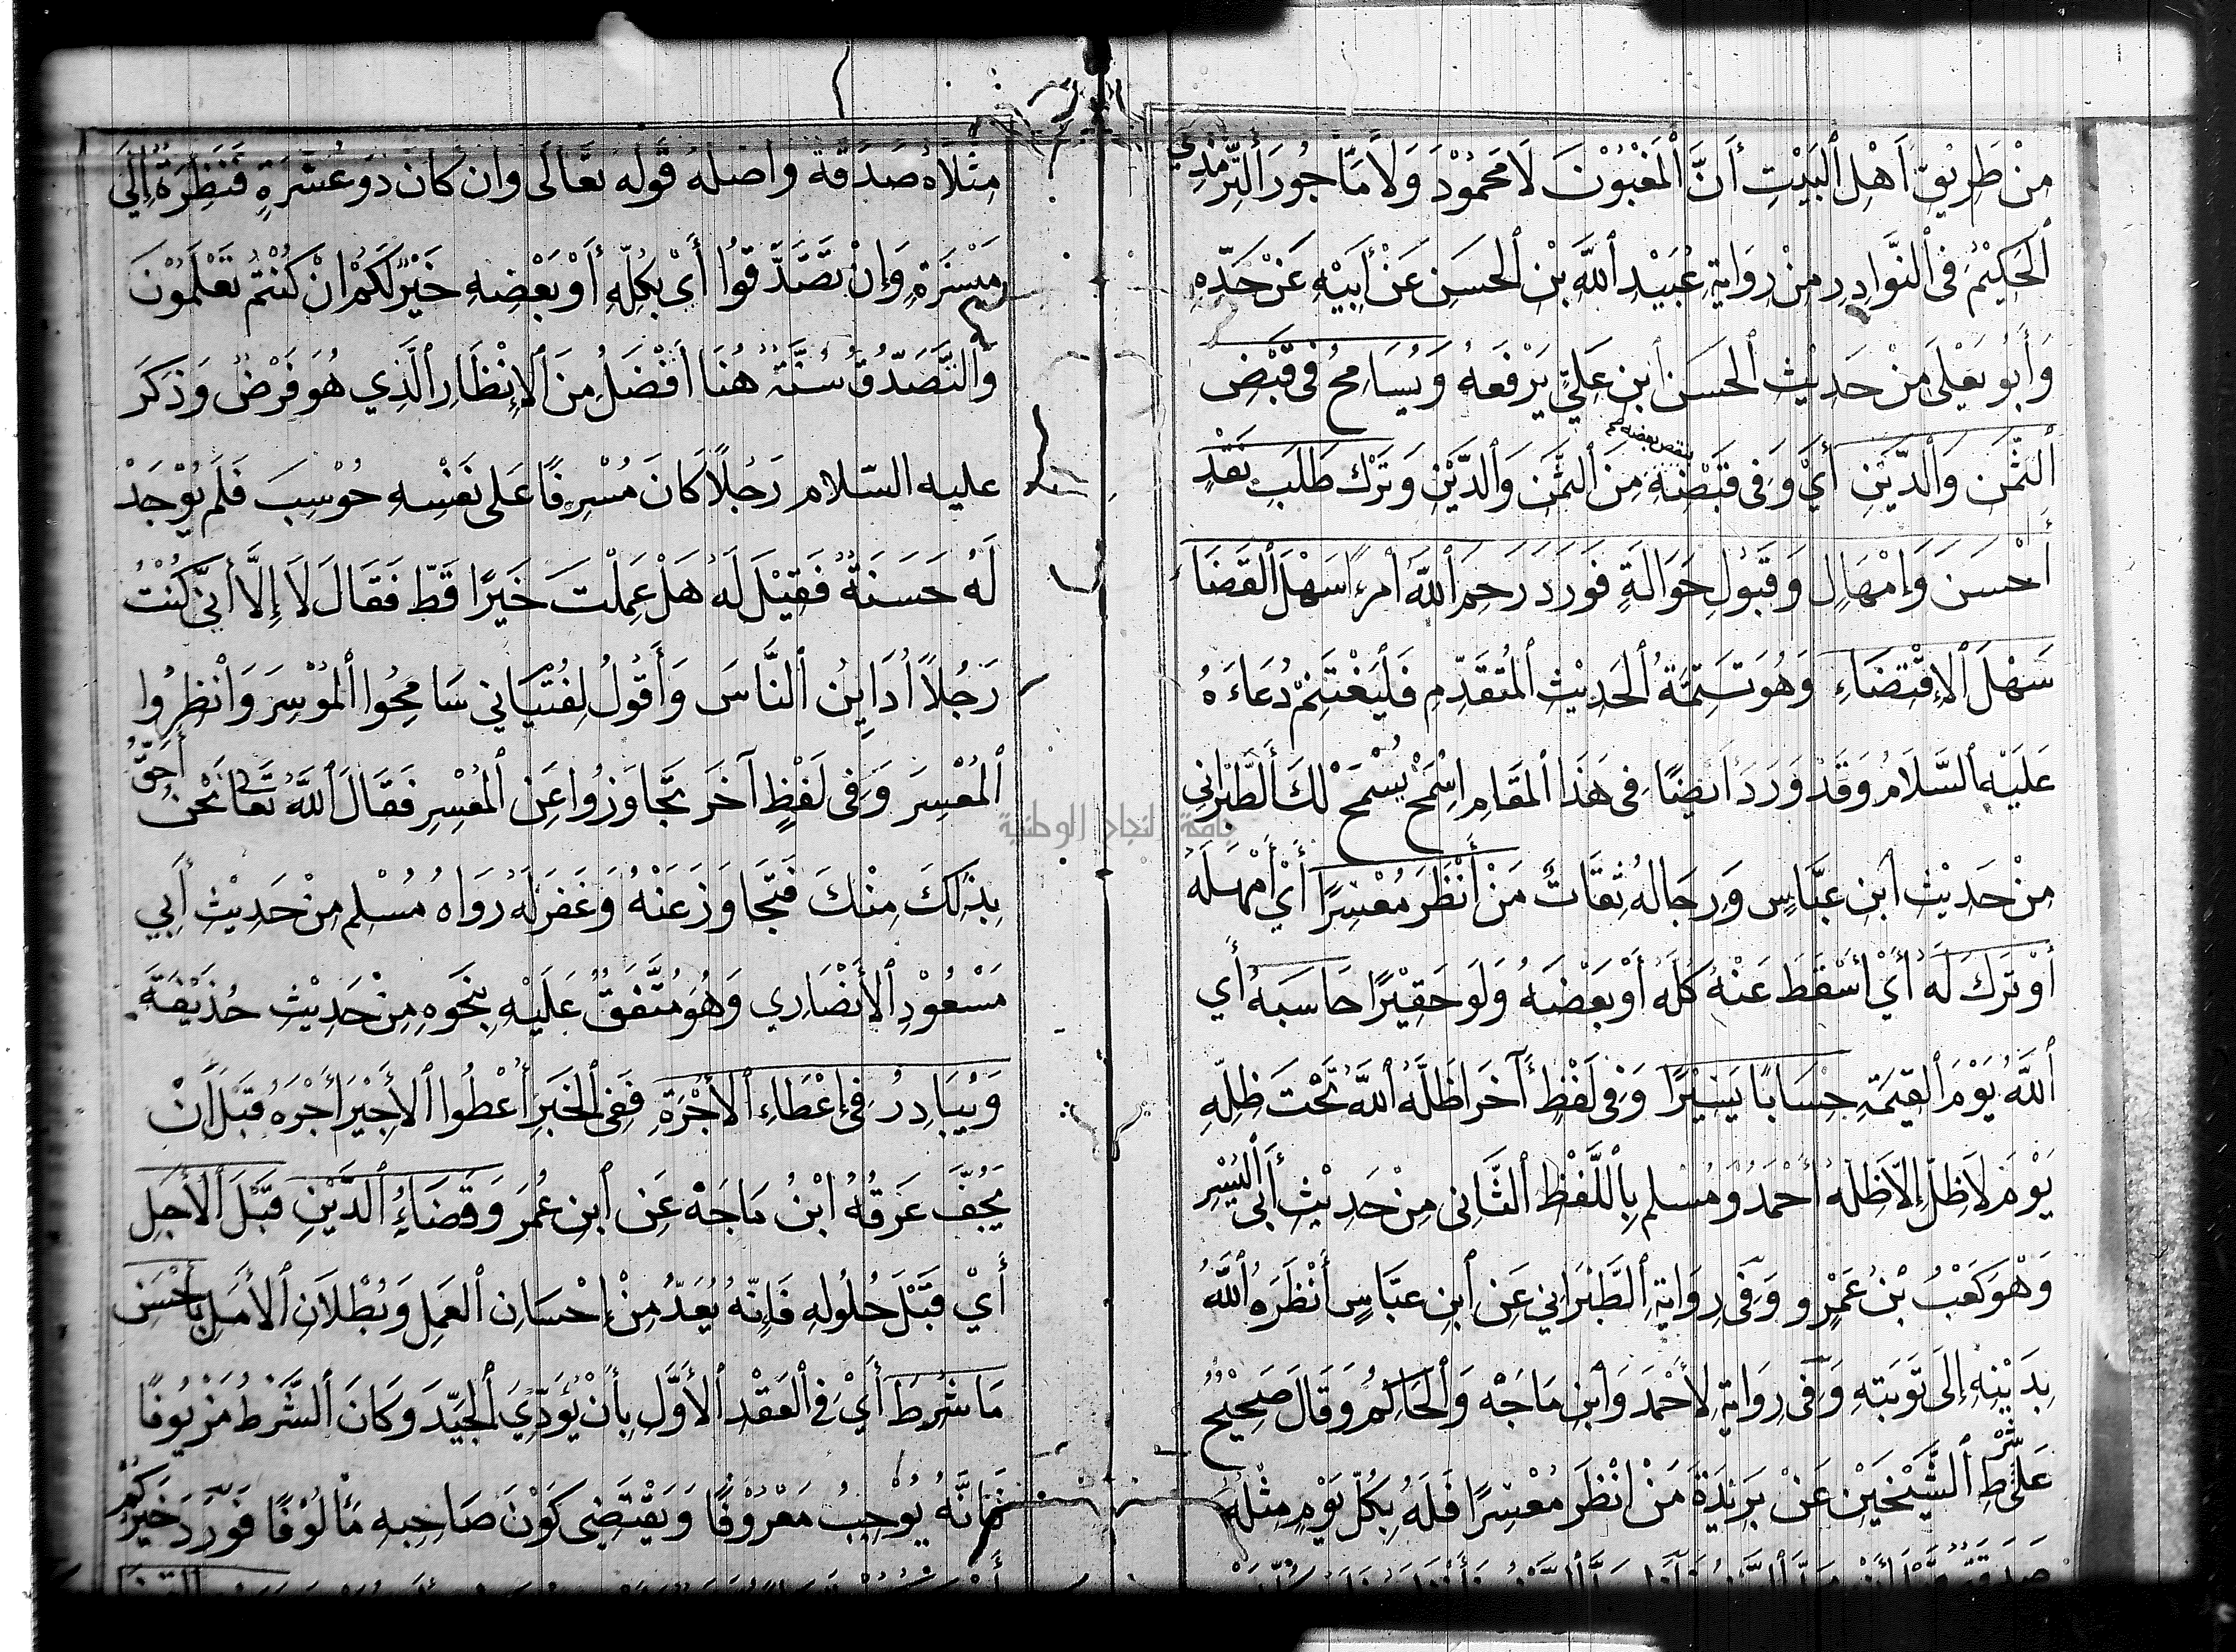 مِنْ طَرِيْقِ أَهْلِ ٱلْبَيْتِ أَنَّ ٱلْمَغْبُوْنَ لَا مَحْمُوْدَ وَلَا مَأْجُوْرَ ٱلتِّرْمِذِي
ٱلْحَكِيْمُ فِى ٱلنَّوَادِرِ مِنْ رِوَايَةِ عُبَيْدِ ٱللَّهِ بْنِ ٱلْحَسَنِ عَنْ أَبِيْهِ عَنْ جَدِّهِ
وَأَبُو يَعْلَى مِنْ حَدِيْثِ ٱلْحَسَنِ ٱبْنِ عَلِيٍّ يَرْفَعُهُ وَيُسَامِحُ فِى قَبْضِ
ٱلثَّمَنِ وَٱلدَّيْنِ أَيْ وَفِى قَبْضِهِ مِنَ ٱلثَّمَنِ وَٱلدَّيْنِ وَتَرْكِ طَلَبِ نَقْدٍ
بنقص بعضه
أَحْسَنَ وَإِمْهَالٍ وَقَبُوْلِ حَوَالَةٍ فَوَرَدَ رَحِمَ ٱللَّهُ أمْرءًا سَهْلَ ٱلْقَضَاءِ
سَهْلَ ٱلإِقْتِضَاءِ وَهُوَ تَتِمَّةُ ٱلْحَدِيْثِ ٱلْمُتَقَدِّمِ فَلْيَغْتَنِمْ دُعَاءَهُ
عَلَيْهِ ٱلسَّلَامُ وَقَدْ وَرَدَ أَيْضًا فِى هَذَا ٱلْمَقَامِ اِسْمَحْ يُسْمَحْ لَكَ ٱلطَّبْرَانِي
مِنْ حَدِيْثِ ٱبْنِ عَبَّاسٍ وَرِجَالُهُ ثِقَاتٌ مَنْ أَنْظَرَ مُعْسِرًا أَيْ أَمْهَلَهُ
أَوْ تَرَكَ لَهُ أَيْ أَسْقَطَ عَنْهُ كُلَّهُ أَوْ بَعْضَهُ وَلَو حَقِيْرًا حَاسَبَهُ أَي
ٱللَّهُ يَوْمَ ٱلْقِيَمَةِ حِسَابًا يَسِيْرًا وَفِى لَفْظٍ آخَرَ اَظَلَّهُ ٱللَّهُ تَحْتَ ظِلِّهِ
يَوْمَ لَا ظِلَّ إِلَّا ظِلُّهُ أَحْمَدُ وَمُسْلِم بِٱللَّفْظِ ٱلثَّانِى مِنْ حَدِيْثِ أَبِى ٱلْيُسْرِ
وَهْوَ كَعْبُ بْنُ عَمْرٍو وَفِى رِوَايَةِ ٱلطَّبْرَانِي عَنِ ٱبْنِ عَبَّاسٍ أَنْظَرَهُ ٱللَّهُ
بِدَيْنِهِ إِلَى تَوْبَتِهِ وَفِى رِوَايَةِ لِأَحْمَدَ وَٱبْنِ مَاجَهْ وَٱلْحَاكِمُ وَقَالَ صَحِيْحٌ
عَلَى شَرْطِ ٱلشَّيْخَيْنِ عَنْ بَرِيْدَةَ مَنْ اَنْظَرَ مُعْسِرًا فَلَهُ بِكُلِّ يَوْمٍ مِثْلُهُ
مِثْلَاهُ صَدَقَةً وأصْلُهُ قَوْلُهُ تَعَالَى وَإِن كَانَ ذو عُسْرَةٍ فَنَظِرَةٌ إِلَى
مَيْسَرَةٍ وَإِنْ تَصَّدَّقُوا أَىْ بِكُلِّهِ أَوْ بَعْضِهِ خَيْرٌ لَكُمْ إِنْ كُنْتُمْ تَعْلَمُوْنَ
وَٱلتَّصَدُّقُ سُنَّةٌ هُنَا اَفْضَلُ مِنَ ٱلإِنْظَارِ ٱلَّذِي هُوَ فَرْضٌ وَذَكَرَ
عليه السّلام رَجُلًا كَانَ مُسْرِفًا عَلى نَفْسِهِ حُوْسِبَ فَلَمْ يُوْجَدْ
لَهُ حَسَنَةٌ فَقِيْلَ لَهُ هَلْ عَمِلْتَ خَيْرًا قَطّ فَقَالَ لَا إِلَّا أَنِّى كُنْتُ
رَجُلًا أُدَايِنُ ٱلنَّاسَ وَأَقُولُ لِفُتْيَانِي سَامِحُوا ٱلْمُوْسِرَ وَانْظِرُوا
ٱلْمُعْسِرَ وَفِى لَفْظٍ آخَرَ تَجَاوَزُوا عَنِ ٱلْمُعْسِرِ فَقَالَ ٱللَّهُ تَعَالَى نَحْنُ أَحَقُّ
بِذَلِكَ مِنْكَ فَتَجَاوَزَ عَنْهُ وَغَفَرَ لَهُ رَوَاهُ مُسْلِم مِنْ حَدِيْثِ أَبِي
مَسْعُوْدِ ٱلأَنْصَارِي وَهُوَ مُتَّفَقٌ عَلَيْهِ بِنَحْوِهِ مِنْ حَدِيْثِ حُذَيْفَةَ
وَيُبَادِرُ فِى إِعْطَاءِ ٱلأُجْرَةِ فَفِى ٱلْخَبَرِ أُعْطُوا ٱلأَجِيْرَ أَجْرَهُ قَبْلَ أَنْ
يَجُفَّ عَرَقُهُ ابْنُ مَاجَهْ عَنِ ٱبْنِ عُمَرَ وَقَضَاءُ ٱلدَّيْنِ قَبْلَ ٱلأَجَلِ
أَيْ قَبْلَ حُلُولِهِ فَإِنَّهُ يُعَدُّ مِنْ إِحْسَانِ ٱلْعَمَلِ وَبُطْلَانِ ٱلأَمَلِ بِأَحْسَن
مَا شُرِطَ أَيْ فِى ٱلْعَقْدِ ٱلأَوَّلِ بِأَنْ يُؤَدِّيَ ٱلْجَيِّدَ وَكَانَ ٱلشَّرْطُ مَزْيُوفًا
فَإِنَّهُ يُوْجِبُ مَعْرُوْفًا وَيَقْتَضِى كَوْنَ صَاحِبِهِ مَأْلُوْفًا فَوَرَدَ خَيْرُكُمْ
جامعة النجاح الوطنية